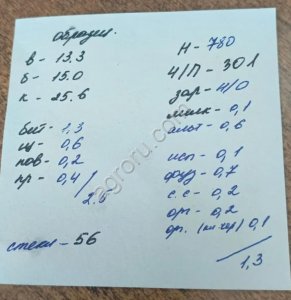 образец.
в - 13.3
б - 15.0
к - 25.6
бит - 1,3
щ - 0,6
пов - 0,2
пр - 0,4
2.6
стекл - 56
Н - 780
Ч/П - 301
зар - н/о
мелк - 0,1
исп - 0,1
фуз - 0,7
с.с - 0,2
орг - 0,2
0,1
1,3
agroru.com